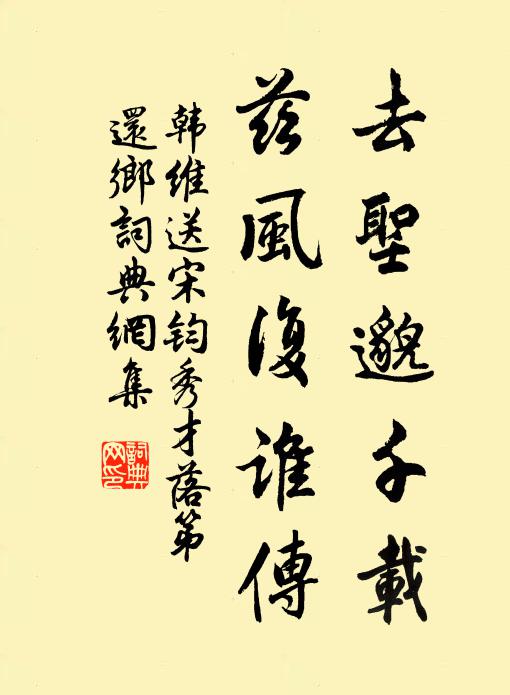 去聖邈千載
茲風復誰傳
韩維送宋鈞秀才落第
還鄉詞典網集
詞典
网印